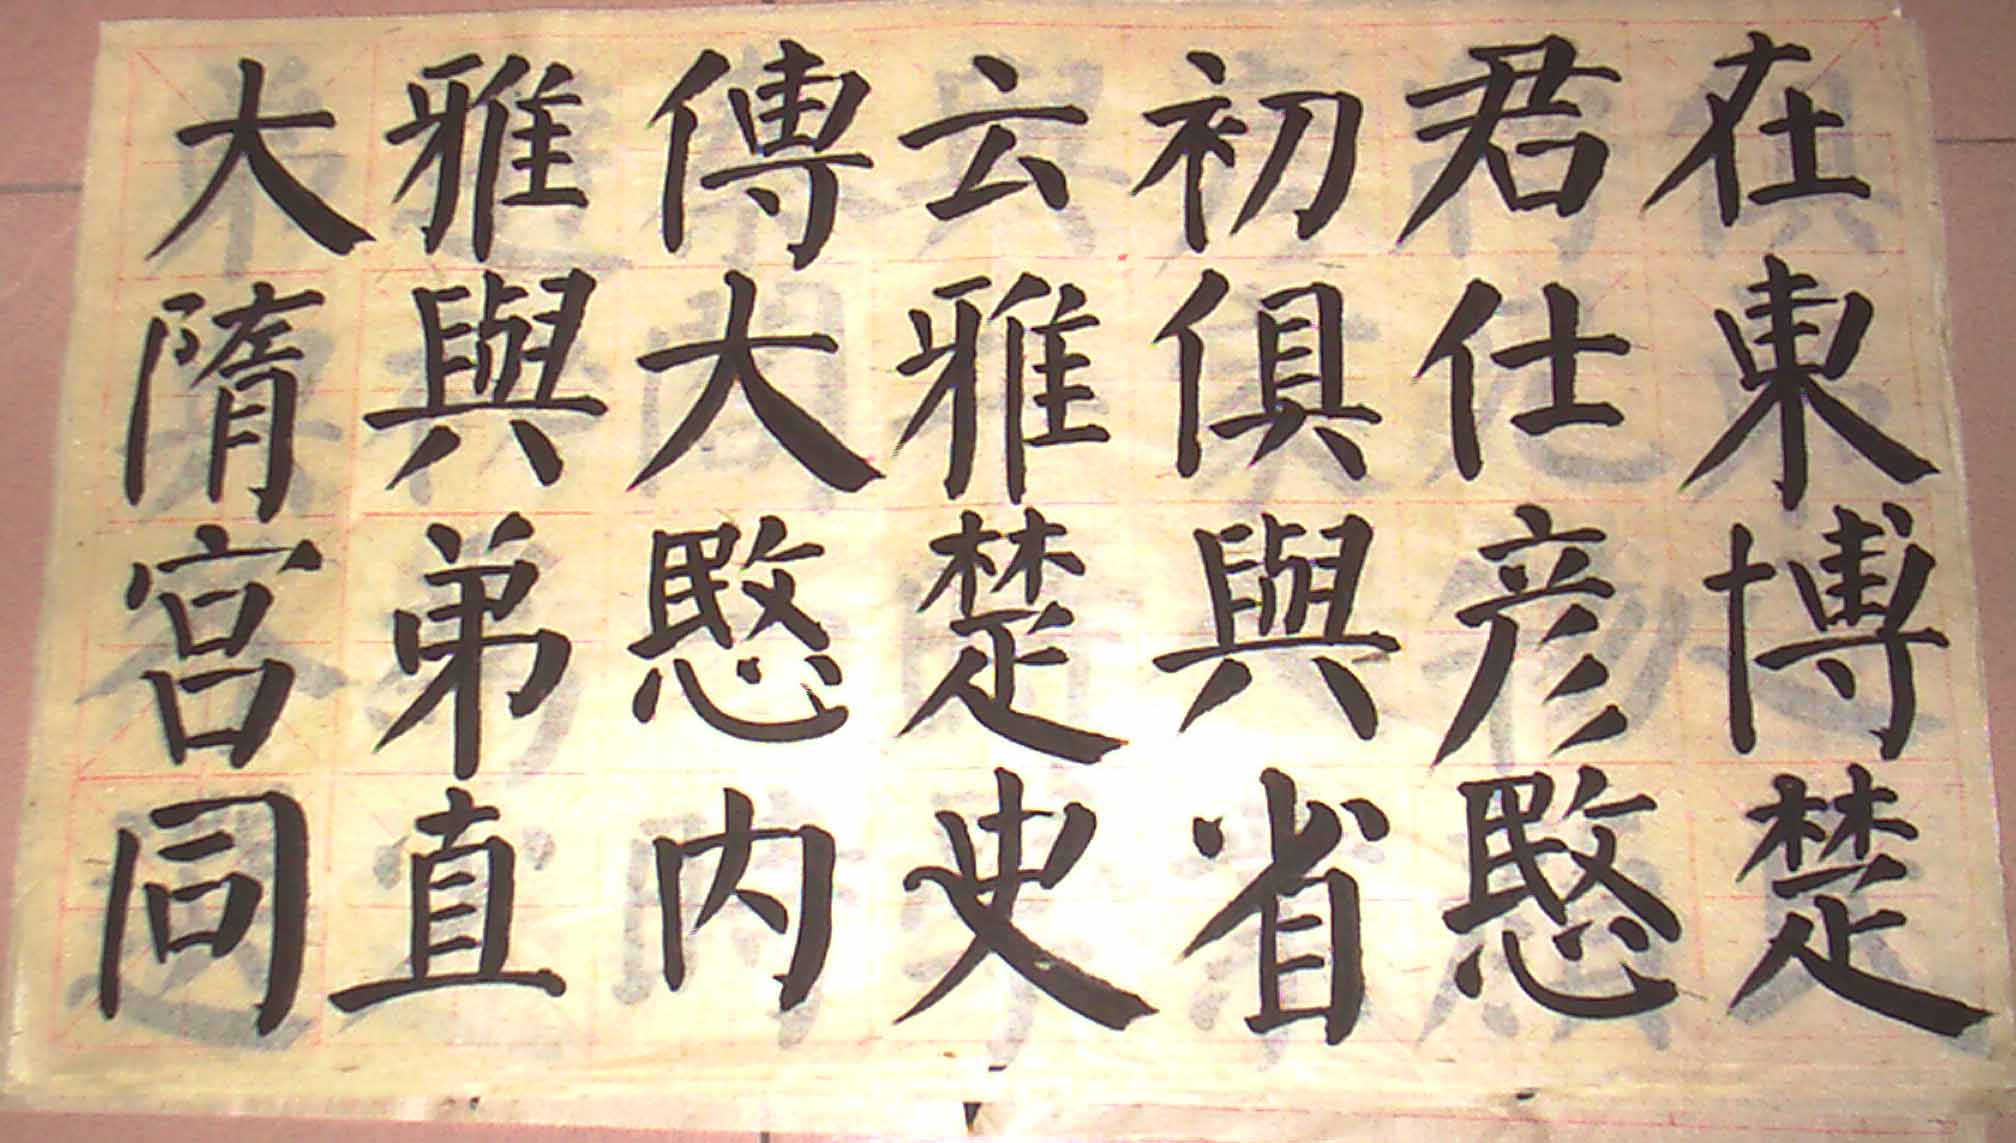 大雅傳云初君在
隋與大雅俱仕東
宮弟愍楚與彦博
同直内史省愍楚